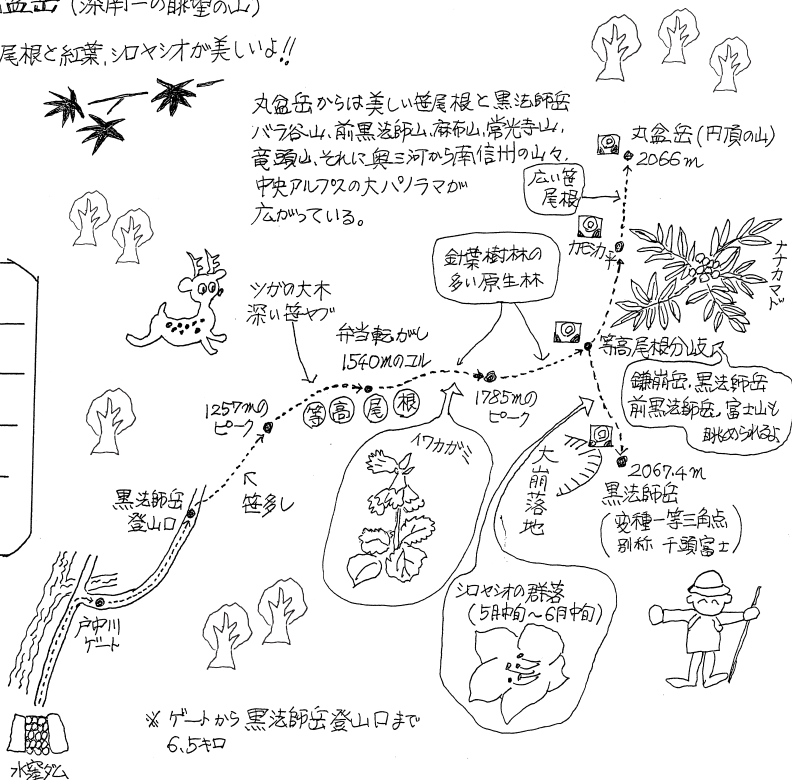 盆岳 (深南一の眺望の山)
尾根と紅葉,シロヤシオが美しいよ!!
丸盆岳からは美しい笹尾根と黒法師岳
バラ谷山、前黒法師山、麻布山、常光寺山、
竜頭山、それに奥三河から南信州の山々、
中央アルプスの大パノラマが
広がっている。
丸盆岳 (円頂の山)
2066m
広い笹
尾根
カモシカ平
ナナカマド
針葉樹林の
多い原生林
ツガの大木
深い笹ヤブ
弁当転がし
1540mのコル
等高尾根分岐
鎌崩岳、黒法師岳
前黒法師岳、富士山も
眺められるよ
1257mの
ピーク
等高尾根
1785mの
ピーク
イワカガミ
大崩落地
2067.4m
黒法師岳
(変種一等三角点
別称 千頭富士)
笹多し
黒法師岳
登山口
シロヤシオの群落
(5月中旬~6月中旬)
戸中川
ゲート
※ ゲートから黒法師岳登山口まで
6.5キロ
水窪ダム